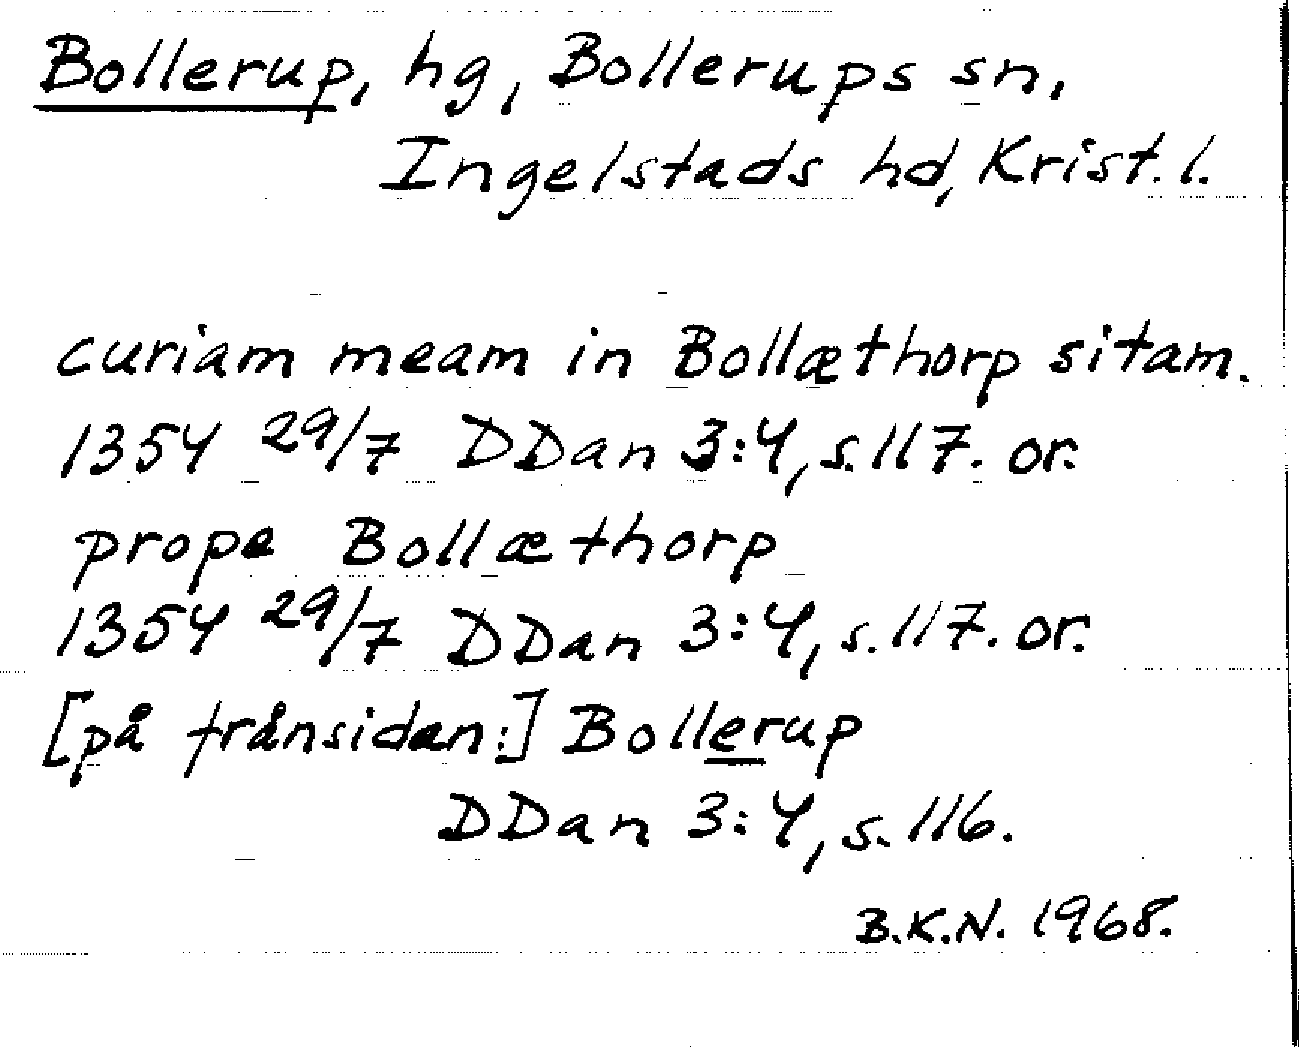 Bollerup, hg, Bollerups sn,
Ingelstads hd, Krist. l.
curiam meam in Bollæthorp sitam.
1354 29/7 DDan 3:4, s. 117. or.
prope Bollæthorp
1354 29/7 DDan 3:4, s. 117. or.
[på frånsidan:] Bollerup
DDan 3:4, s. 116.
B.K.N. 1968.